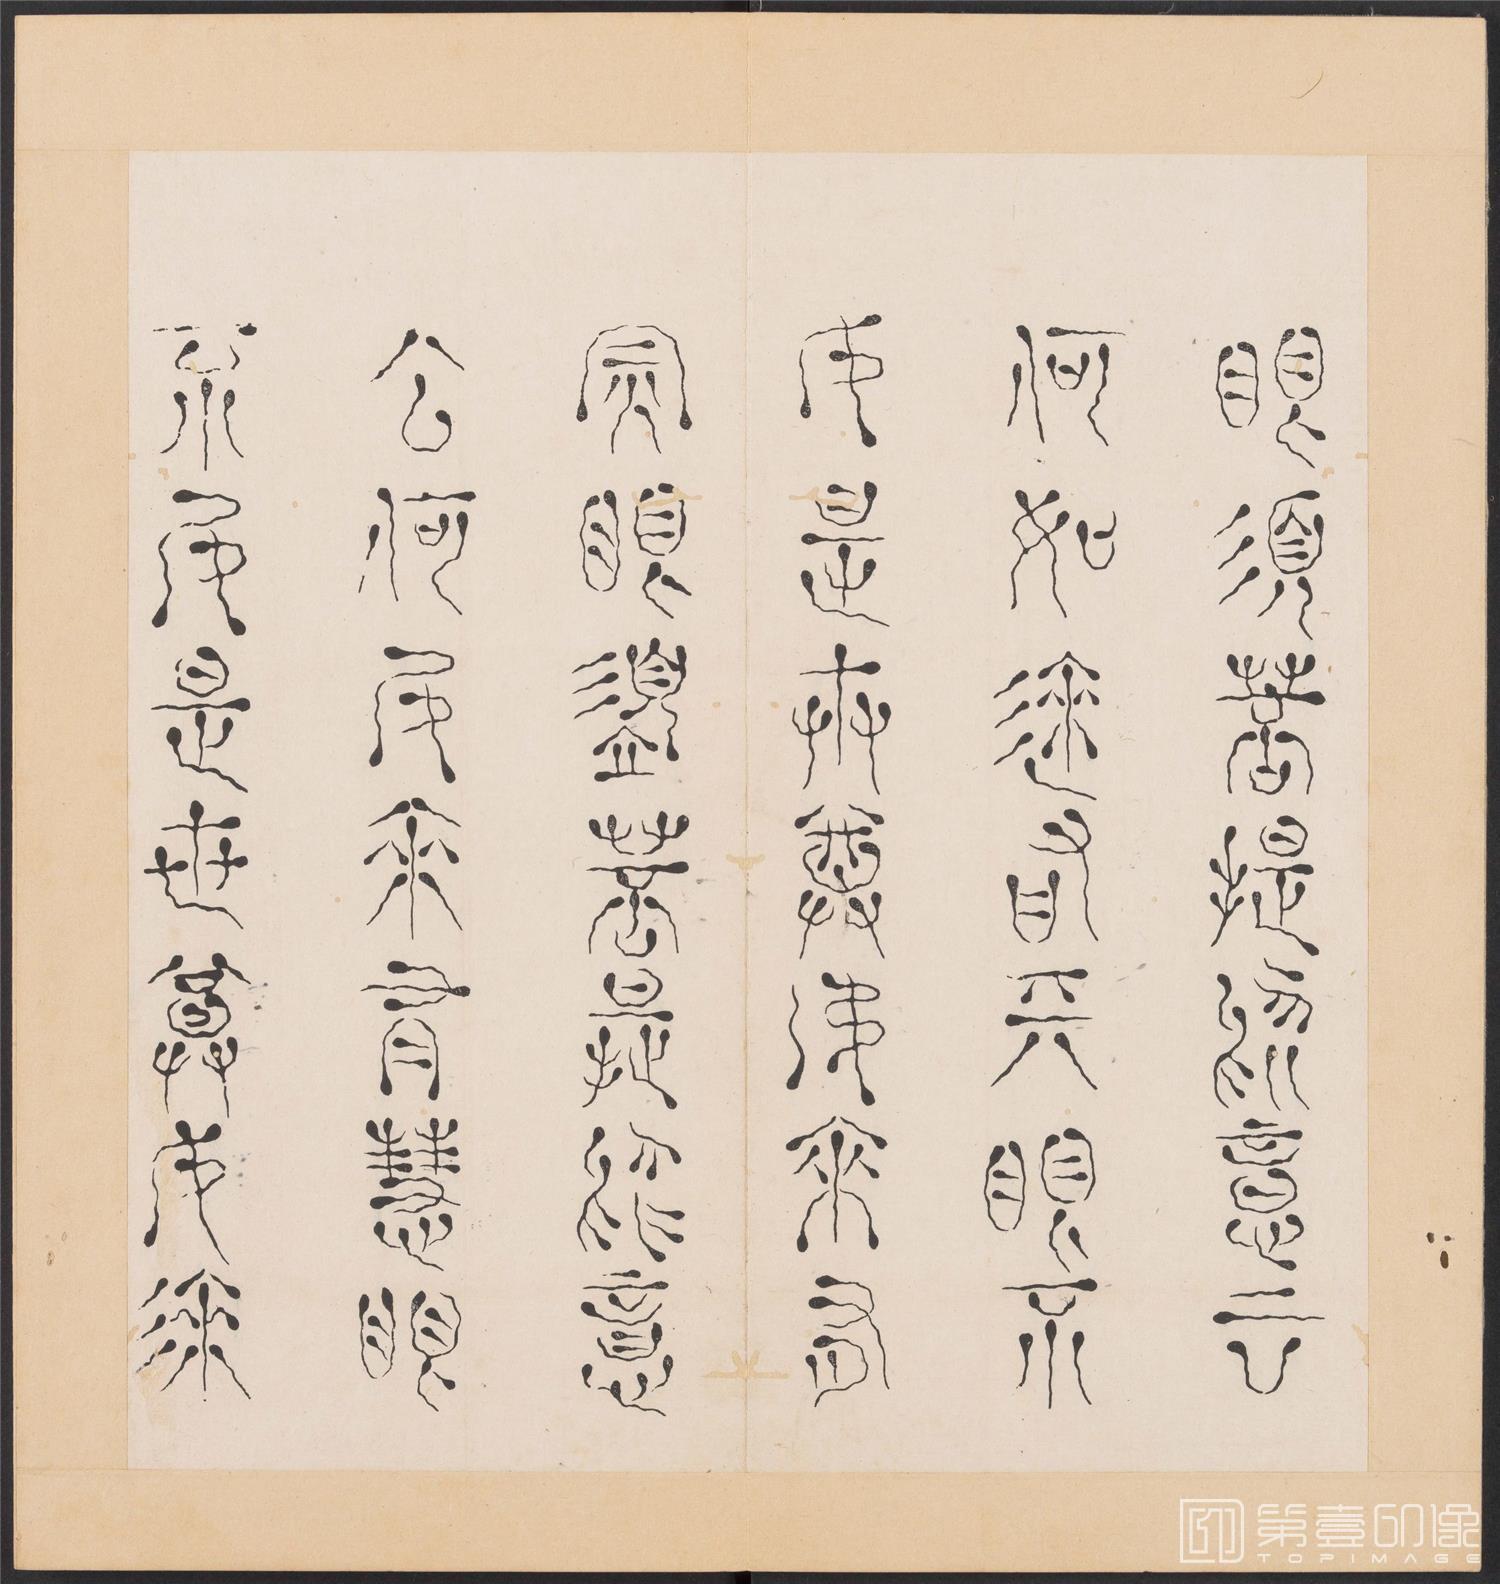 眼須菩提於意云
何如來有天眼不
如是世尊如來有
天眼須菩提於意
云何如來有慧眼
不如是世尊如來
第壹印像
TOPIMAGE